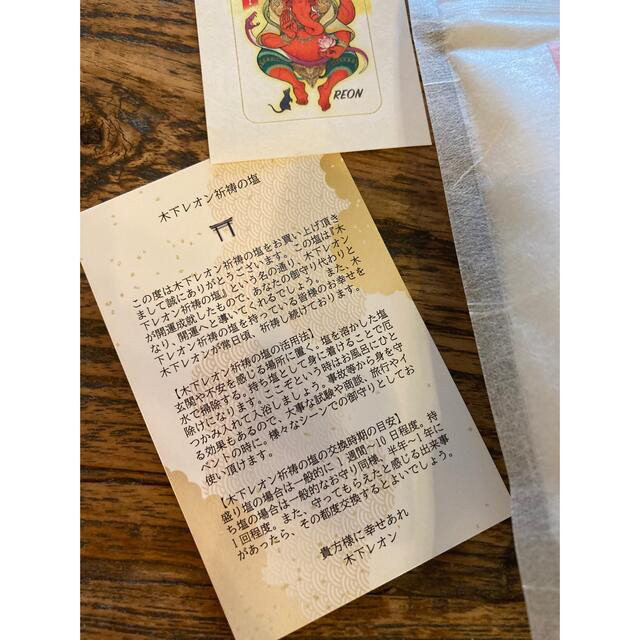 REON
木下レオン祈祷の塩
この度は木下レオン祈祷の塩をお買い上げ頂き
まして誠にありがとうございます。この塩は『木
下レオン祈祷の塩』という名の通り、木下レオン
が開運成就したもので、あなたの御守り代わりと
なり、開運へと導いてくれるでしょう。また、木
下レオン祈祷の塩を持っている皆様のお幸せを
木下レオンが常日頃、祈祷し続けております。
【木下レオン祈祷の塩の活用法】
玄関や不安を感じる場所に置く。塩を溶かした塩
水で掃除する。持ち塩として身に着けることで厄
除けになります。ここぞという時はお風呂にひと
つかみ入れて入浴しましょう。事故等から身を守
る効果もあるので、大事な試験や商談、旅行やイ
ベントの時に。様々なシーンでの御守りとしてお
使い頂けます。
【木下レオン祈祷の塩の交換時期の目安】
盛り塩の場合は一般的に1週間〜10日程度。持
ち塩の場合は一般的なお守り同様、半年〜1年に
1回程度。また、守ってもらえたと感じる出来事
があったら、その都度交換するとよいでしょう。
貴方様に幸せあれ
木下レオン